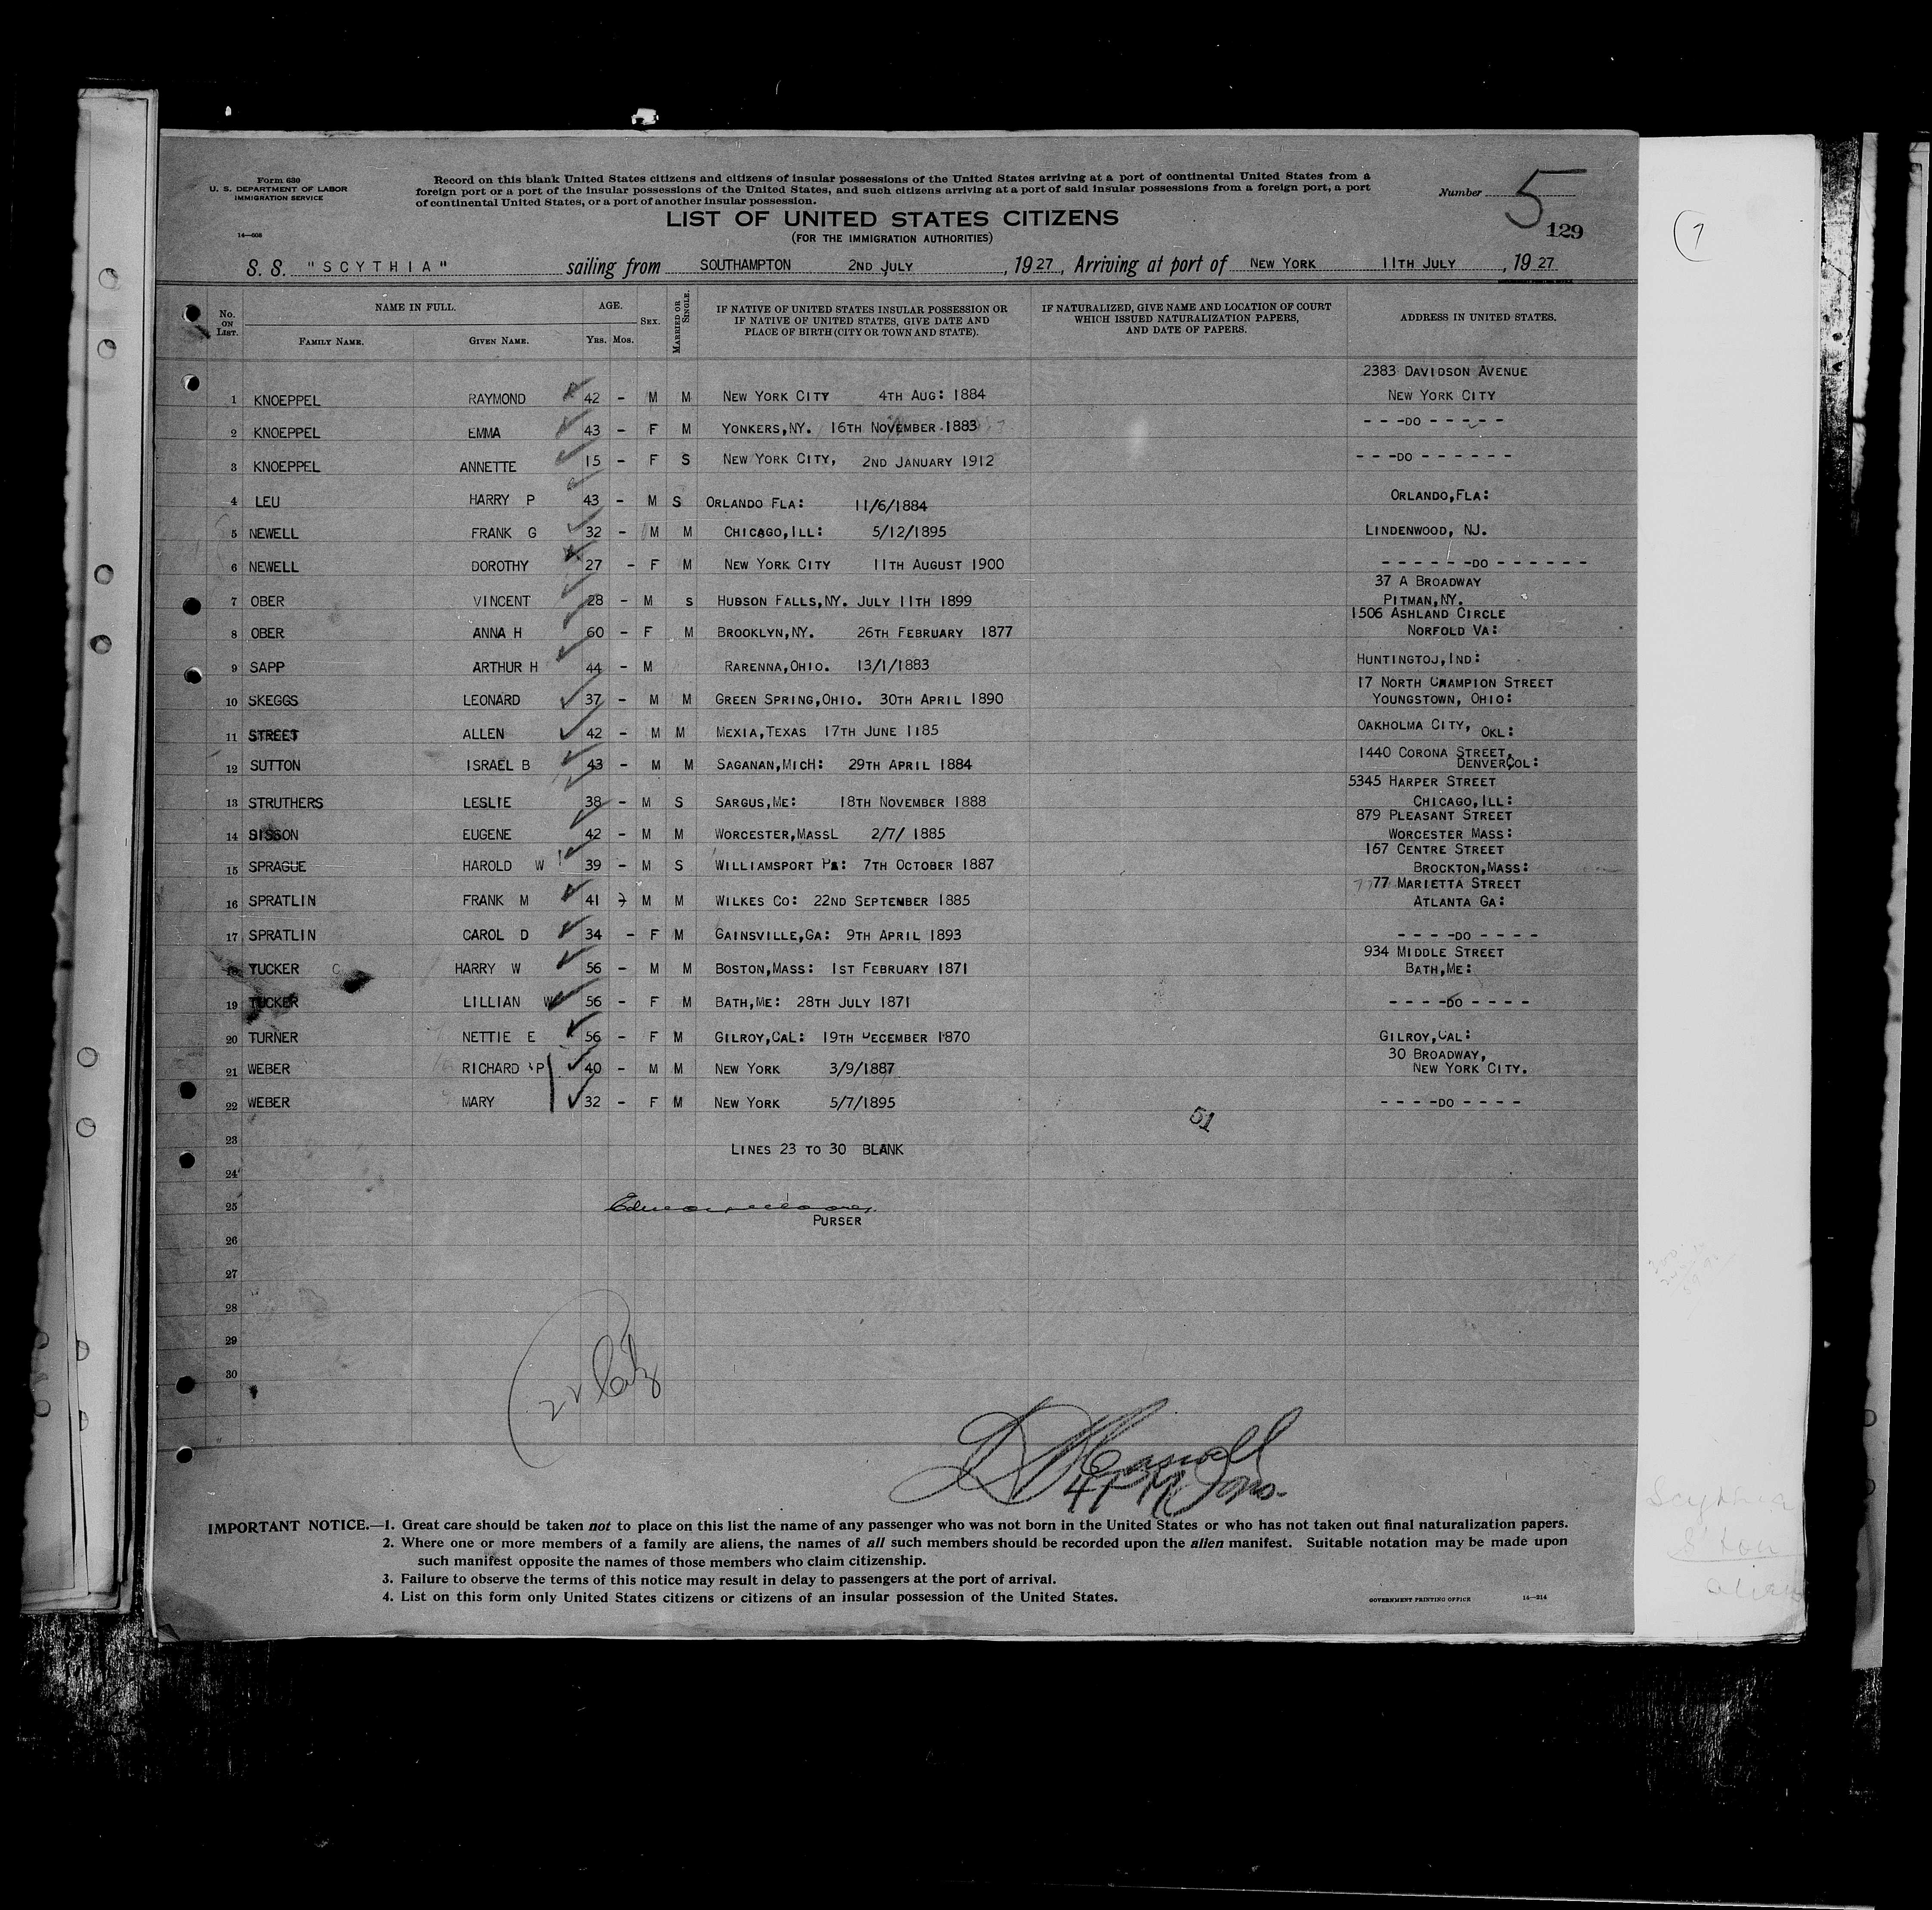 Form 630
U. S. DEPARTMENT OF LABOR
IMMIGRATION SERVICE
14—608
Record on this blank United States citizens and citizens of insular possessions of the United States arriving at a port of continental United States from a
foreign port or a port of the insular possessions of the United States, and such citizens arriving at a port of said insular possessions from a foreign port, a port
of continental United States, or a port of another insular possession.
Number 5
129
LIST OF UNITED STATES CITIZENS
(FOR THE IMMIGRATION AUTHORITIES)
S. S. "SCYTHIA" sailing from SOUTHAMPTON 2ND JULY, 1927, Arriving at port of NEW YORK 11TH JULY, 1927
No. ON LIST. NAME IN FULL. FAMILY NAME. GIVEN NAME. AGE. YRS. MOS. SEX. MARRIED OR SINGLE. IF NATIVE OF UNITED STATES INSULAR POSSESSION OR IF NATIVE OF UNITED STATES, GIVE DATE AND PLACE OF BIRTH (CITY OR TOWN AND STATE). IF NATURALIZED, GIVE NAME AND LOCATION OF COURT WHICH ISSUED NATURALIZATION PAPERS, AND DATE OF PAPERS. ADDRESS IN UNITED STATES.
2383 DAVIDSON AVENUE
1 KNOEPPEL RAYMOND 42 - M M NEW YORK CITY 4TH AUG: 1884 NEW YORK CITY
2 KNOEPPEL EMMA 43 - F M YONKERS,NY. 16TH NOVEMBER 1883 - - -DO - - - - -
3 KNOEPPEL ANNETTE 15 - F S NEW YORK CITY, 2ND JANUARY 1912 - - -DO - - - - - -
4 LEU HARRY P 43 - M S ORLANDO FLA: 11/6/1884 ORLANDO,FLA:
5 NEWELL FRANK G 32 - M M CHICAGO,ILL: 5/12/1895 LINDENWOOD, NJ.
6 NEWELL DOROTHY 27 - F M NEW YORK CITY 11TH AUGUST 1900 - - - - - -DO - - - - - -
37 A BROADWAY
7 OBER VINCENT 28 - M S HUDSON FALLS,NY. JULY 11TH 1899 PITMAN,NY.
1506 ASHLAND CIRCLE
8 OBER ANNA H 60 - F M BROOKLYN,NY. 26TH FEBRUARY 1877 NORFOLD VA:
9 SAPP ARTHUR H 44 - M RARENNA,OHIO. 13/1/1883 HUNTINGTOJ,IND:
17 NORTH CHAMPION STREET
10 SKEGGS LEONARD 37 - M M GREEN SPRING,OHIO. 30TH APRIL 1890 YOUNGSTOWN, OHIO:
11 STREET ALLEN 42 - M M MEXIA,TEXAS 17TH JUNE 1185 OAKHOLMA CITY, OKL:
1440 CORONA STREET,
12 SUTTON ISRAEL B 43 - M M SAGANAN,MICH: 29TH APRIL 1884 DENVER,COL:
5345 HARPER STREET
13 STRUTHERS LESLIE 38 - M S SARGUS,ME: 18TH NOVEMBER 1888 CHICAGO,ILL:
879 PLEASANT STREET
14 SISSON EUGENE 42 - M M WORCESTER,MASSL 2/7/ 1885 WORCESTER MASS:
167 CENTRE STREET
15 SPRAGUE HAROLD W 39 - M S WILLIAMSPORT PA: 7TH OCTOBER 1887 BROCKTON,MASS:
77 MARIETTA STREET
16 SPRATLIN FRANK M 41 M M WILKES CO: 22ND SEPTEMBER 1885 ATLANTA GA:
17 SPRATLIN CAROL D 34 - F M GAINSVILLE,GA: 9TH APRIL 1893 - - - -DO - - - -
934 MIDDLE STREET
18 TUCKER HARRY W 56 - M M BOSTON,MASS: 1ST FEBRUARY 1871 BATH,ME:
19 TUCKER LILLIAN W 56 - F M BATH,ME: 28TH JULY 1871 - - - -DO - - - -
20 TURNER NETTIE E 56 - F M GILROY,CAL: 19TH DECEMBER 1870 GILROY,CAL:
30 BROADWAY,
21 WEBER RICHARD P 40 - M M NEW YORK 3/9/1887 NEW YORK CITY.
22 WEBER MARY 32 - F M NEW YORK 5/7/1895 - - - -DO - - - -
51
23
LINES 23 TO 30 BLANK
24
25
PURSER
26
27
28
29
30
IMPORTANT NOTICE.—1. Great care should be taken not to place on this list the name of any passenger who was not born in the United States or who has not taken out final naturalization papers.
2. Where one or more members of a family are aliens, the names of all such members should be recorded upon the alien manifest. Suitable notation may be made upon
such manifest opposite the names of those members who claim citizenship.
3. Failure to observe the terms of this notice may result in delay to passengers at the port of arrival.
4. List on this form only United States citizens or citizens of an insular possession of the United States.
GOVERNMENT PRINTING OFFICE 14—214
Scythia